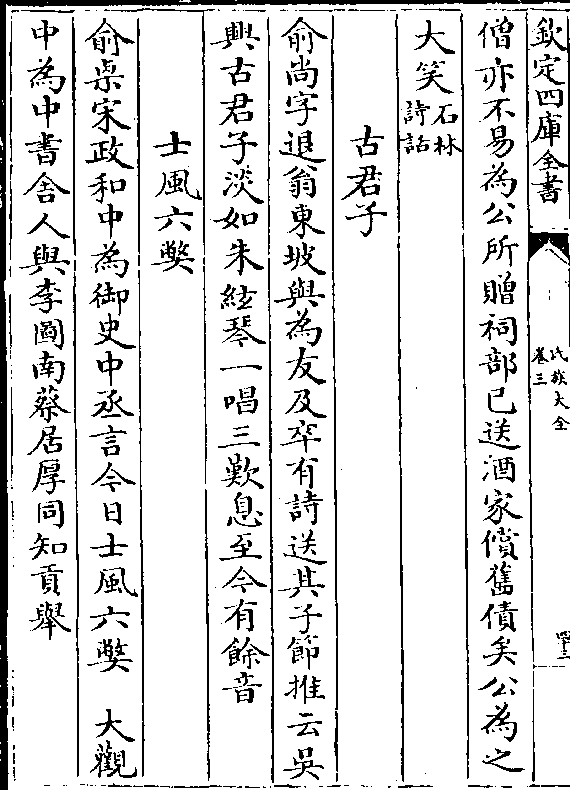 欽定四庫全書
氏族大全
卷三
僧亦不易為公所贈祠部已送酒家償舊債矣公為之
大笑石林詩話
古君子
俞尚字退翁東坡與為友及卒有詩送其子節推云吳
興古君子淡如朱絃琴一唱三歎息至今有餘音
士風六獘
俞㮚宋政和中為御史中丞言今日士風六獘　大觀
中為中書舍人與李圖南蔡居厚同知貢舉